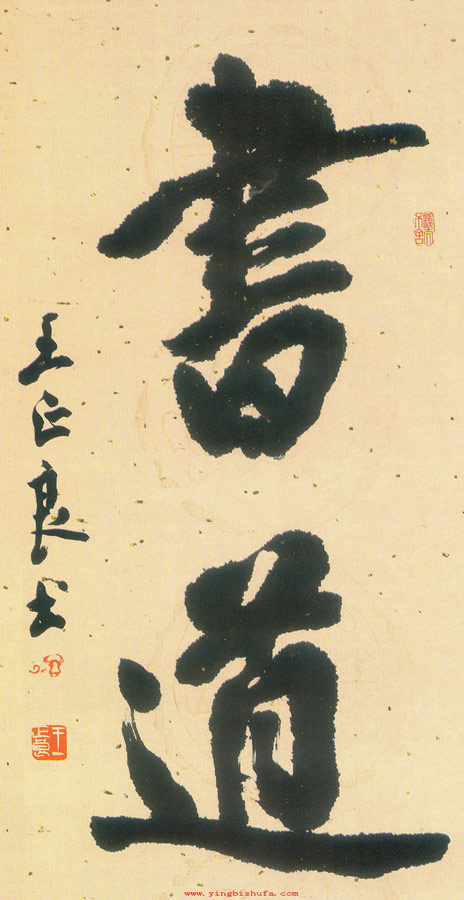 書道
王正良书
www.yingbishufa.com